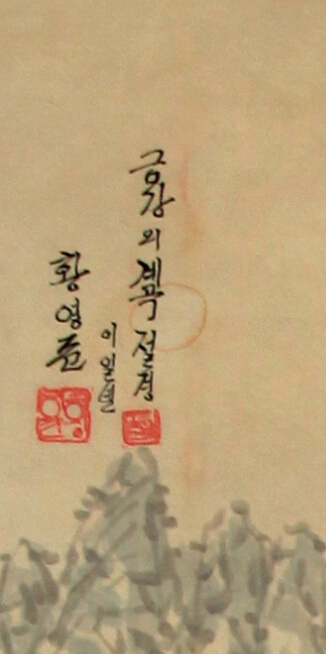 금강의 계곡 절경
이일련
황영준